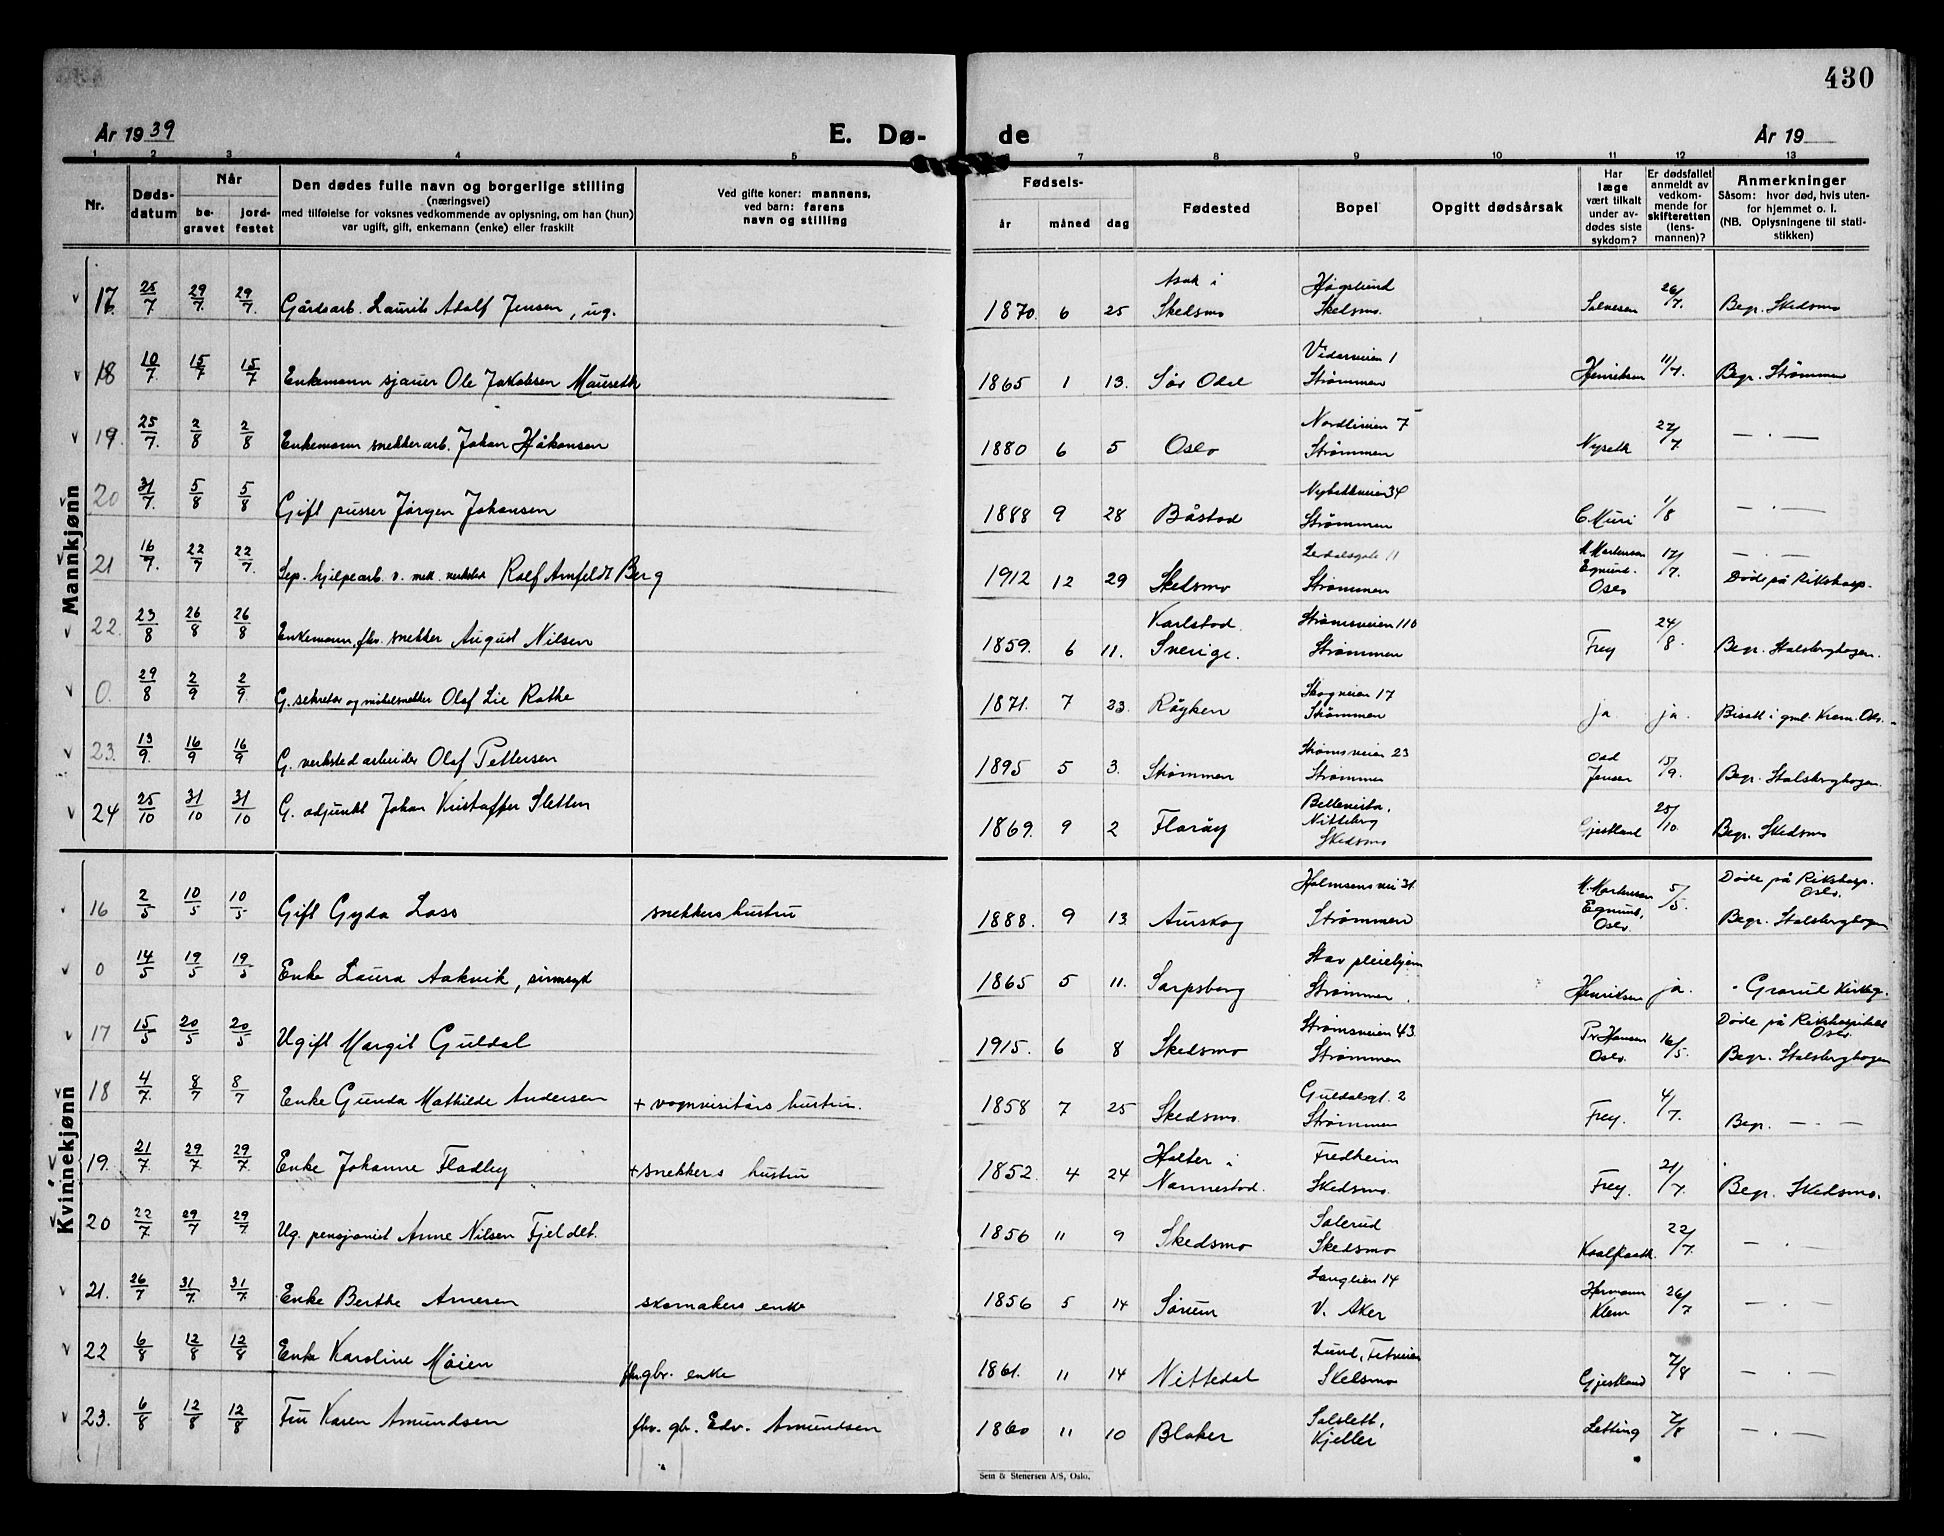 430
År 1939
E. Dø-
de
År 19
1 2 3 4 5 7 8 9 10 11 12 13
Nr.
Døds-
datum
Når
be-
gravet
jord-
festet
Den dødes fulle navn og borgerlige stilling
(næringsvei)
med tilføielse for voksnes vedkommende av oplysning, om han (hun)
var ugift, gift, enkemann (enke) eller fraskilt
Ved gifte koner: mannens,
ved barn: farens
navn og stilling
Fødsels-
år måned dag
Fødested
Bopel
Opgitt dødsårsak
Har
læge
vært tilkalt
under av-
dødes siste
sykdom?
Er dødsfallet
anmeldt av
vedkom-
mende for
skifteretten
(lens-
mannen)?
Anmerkninger
Såsom: hvor død, hvis uten-
for hjemmet o. l.
(NB. Oplysningene til stati-
stikken)
Mannkjønn
17. 25/7 29/7 29/7. Gårdsarb. Laurits Adolf Jensen, ug. 1870. 6 25 Asak i Skedsmo Høgslund Skedsmo. Salvesen 26/7. Begr. Skedsmo
18 10/7. 15/7 15/7 Enkemann sjauer Ole Jakobsen Mauseth 1865 1 13. Sør Odal Vidarveien 1 Strømmen Henriksen 11/7. Begr. Strømmen
19. 25/7. 2/8 2/8 Enkemann snekkerarb. Johan Håkonsen 1880 6 5 Oslo Nordliveien 7 Strømmen Nyseth 27/7. — . —
20 31/7. 5/8 5/8 Gift pusser Jørgen Johansen 1888 9 28 Båstad Nybakkveien 34 Strømmen C Muri 1/8 — . —
21 16/7. 22/7 22/7. Sep. hjelpearb. v. mek. verksted Rolf Arnfeldt Berg 1912 12 29 Skedsmo Lerdalsgate 11 Strømmen M. Martensen Egnund. Oslo 17/7. — . — Døde på Rikshosp.
22. 23/8 26/8 26/8 Enkemann, fhv. snekker August Nilsen 1859. 6 11. Karlstad. Sverige. Strømsveien 110 Strømmen Frey 24/8. Begr. Stalsberghagen.
0. 29/8 2/9 2/9. G. sekretær og møbelsnekker Olaf Lie Rathe 1871. 7 23. Røyken Skogveien 17 Strømmen ja ja. Bisatt i gml. Krem. Oslo
23. 13/9. 16/9 16/9 G. verkstedarbeider Olaf Pettersen 1895 5 3. Strømmen Strømsveien 23 Strømmen Odd Jensen 15/9. Begr. Stalsberghagen.
24 25/10 31/10 31/10 G. adjunkt Johan Kristoffer Sletten 1869. 9 2 Florøy Bellevista, Nitteberg Skedsmo Gjestland 25/10. Begr. Skedsmo
Kvinnekjønn
16 2/5 10/5 10/5 Gift Gyda Loso snekkers hustru 1888. 9 13. Aurskog Holmsensvei 31. Strømmen M. Martensen Egnund, Oslo 5/5. Døde på Rikshosp. Oslo. Begr. Stalsberghagen
0 14/5 19/5 19/5 Enke Laura Aakvik, sinnsyk 1865 5 11. Sarpsborg Stav pleiehjem Strømmen. Henriksen ja. Grorud Kirkeg.
17 15/5 20/5 20/5. Ugift Margit Guldal 1915. 6 8 Skedsmo Strømsveien 43. Strømmen Pr. Hansen Oslo. 16/5. Døde på Rikshospitalet Oslo. Begr. Stalsberghagen
18 4/7. 8/7 8/7 Enke Gunda Mathilde Andersen + vognvisitørs hustru. 1858 7 25 Skedsmo. Guldalsgt. 2 Strømmen Frey. 4/7. Begr. — . —
19. 21/7. 29/7 29/7. Enke Johanne Fladby + snekkers hustru 1852. 4 24 Holter i Nannestad. Fredheim Skedsmo. Frey. 21/7. Begr. Skedsmo.
20 22/7 29/7 29/7. Ug. pensjonist Anne Nilsen Fjeldet. 1856 11 9 Skedsmo Salerud Skedsmo 22/7. — . —
21. 26/7 31/7. 31/7. Enke Berthe Arnesen skomakers enke 1856 5 14 Sørum Langlien 14 V. Aker Hermann Klem 26/7 — . —
22 6/8 12/8 12/8 Enke Karoline Møien fhv. gbr. enke 1861. 11 14 Nittedal Lund, Fetveien Skedsmo Gjestland 7/8 — . —
23. 6/8 12/8 12/8 Fru Karen Amundsen fhv. gbr. Edv. Amundsen 1860 11 10 Blaker Salslett, Kjeller Letting 7/8 — . —
Sem & Stenersen A/S, Oslo.